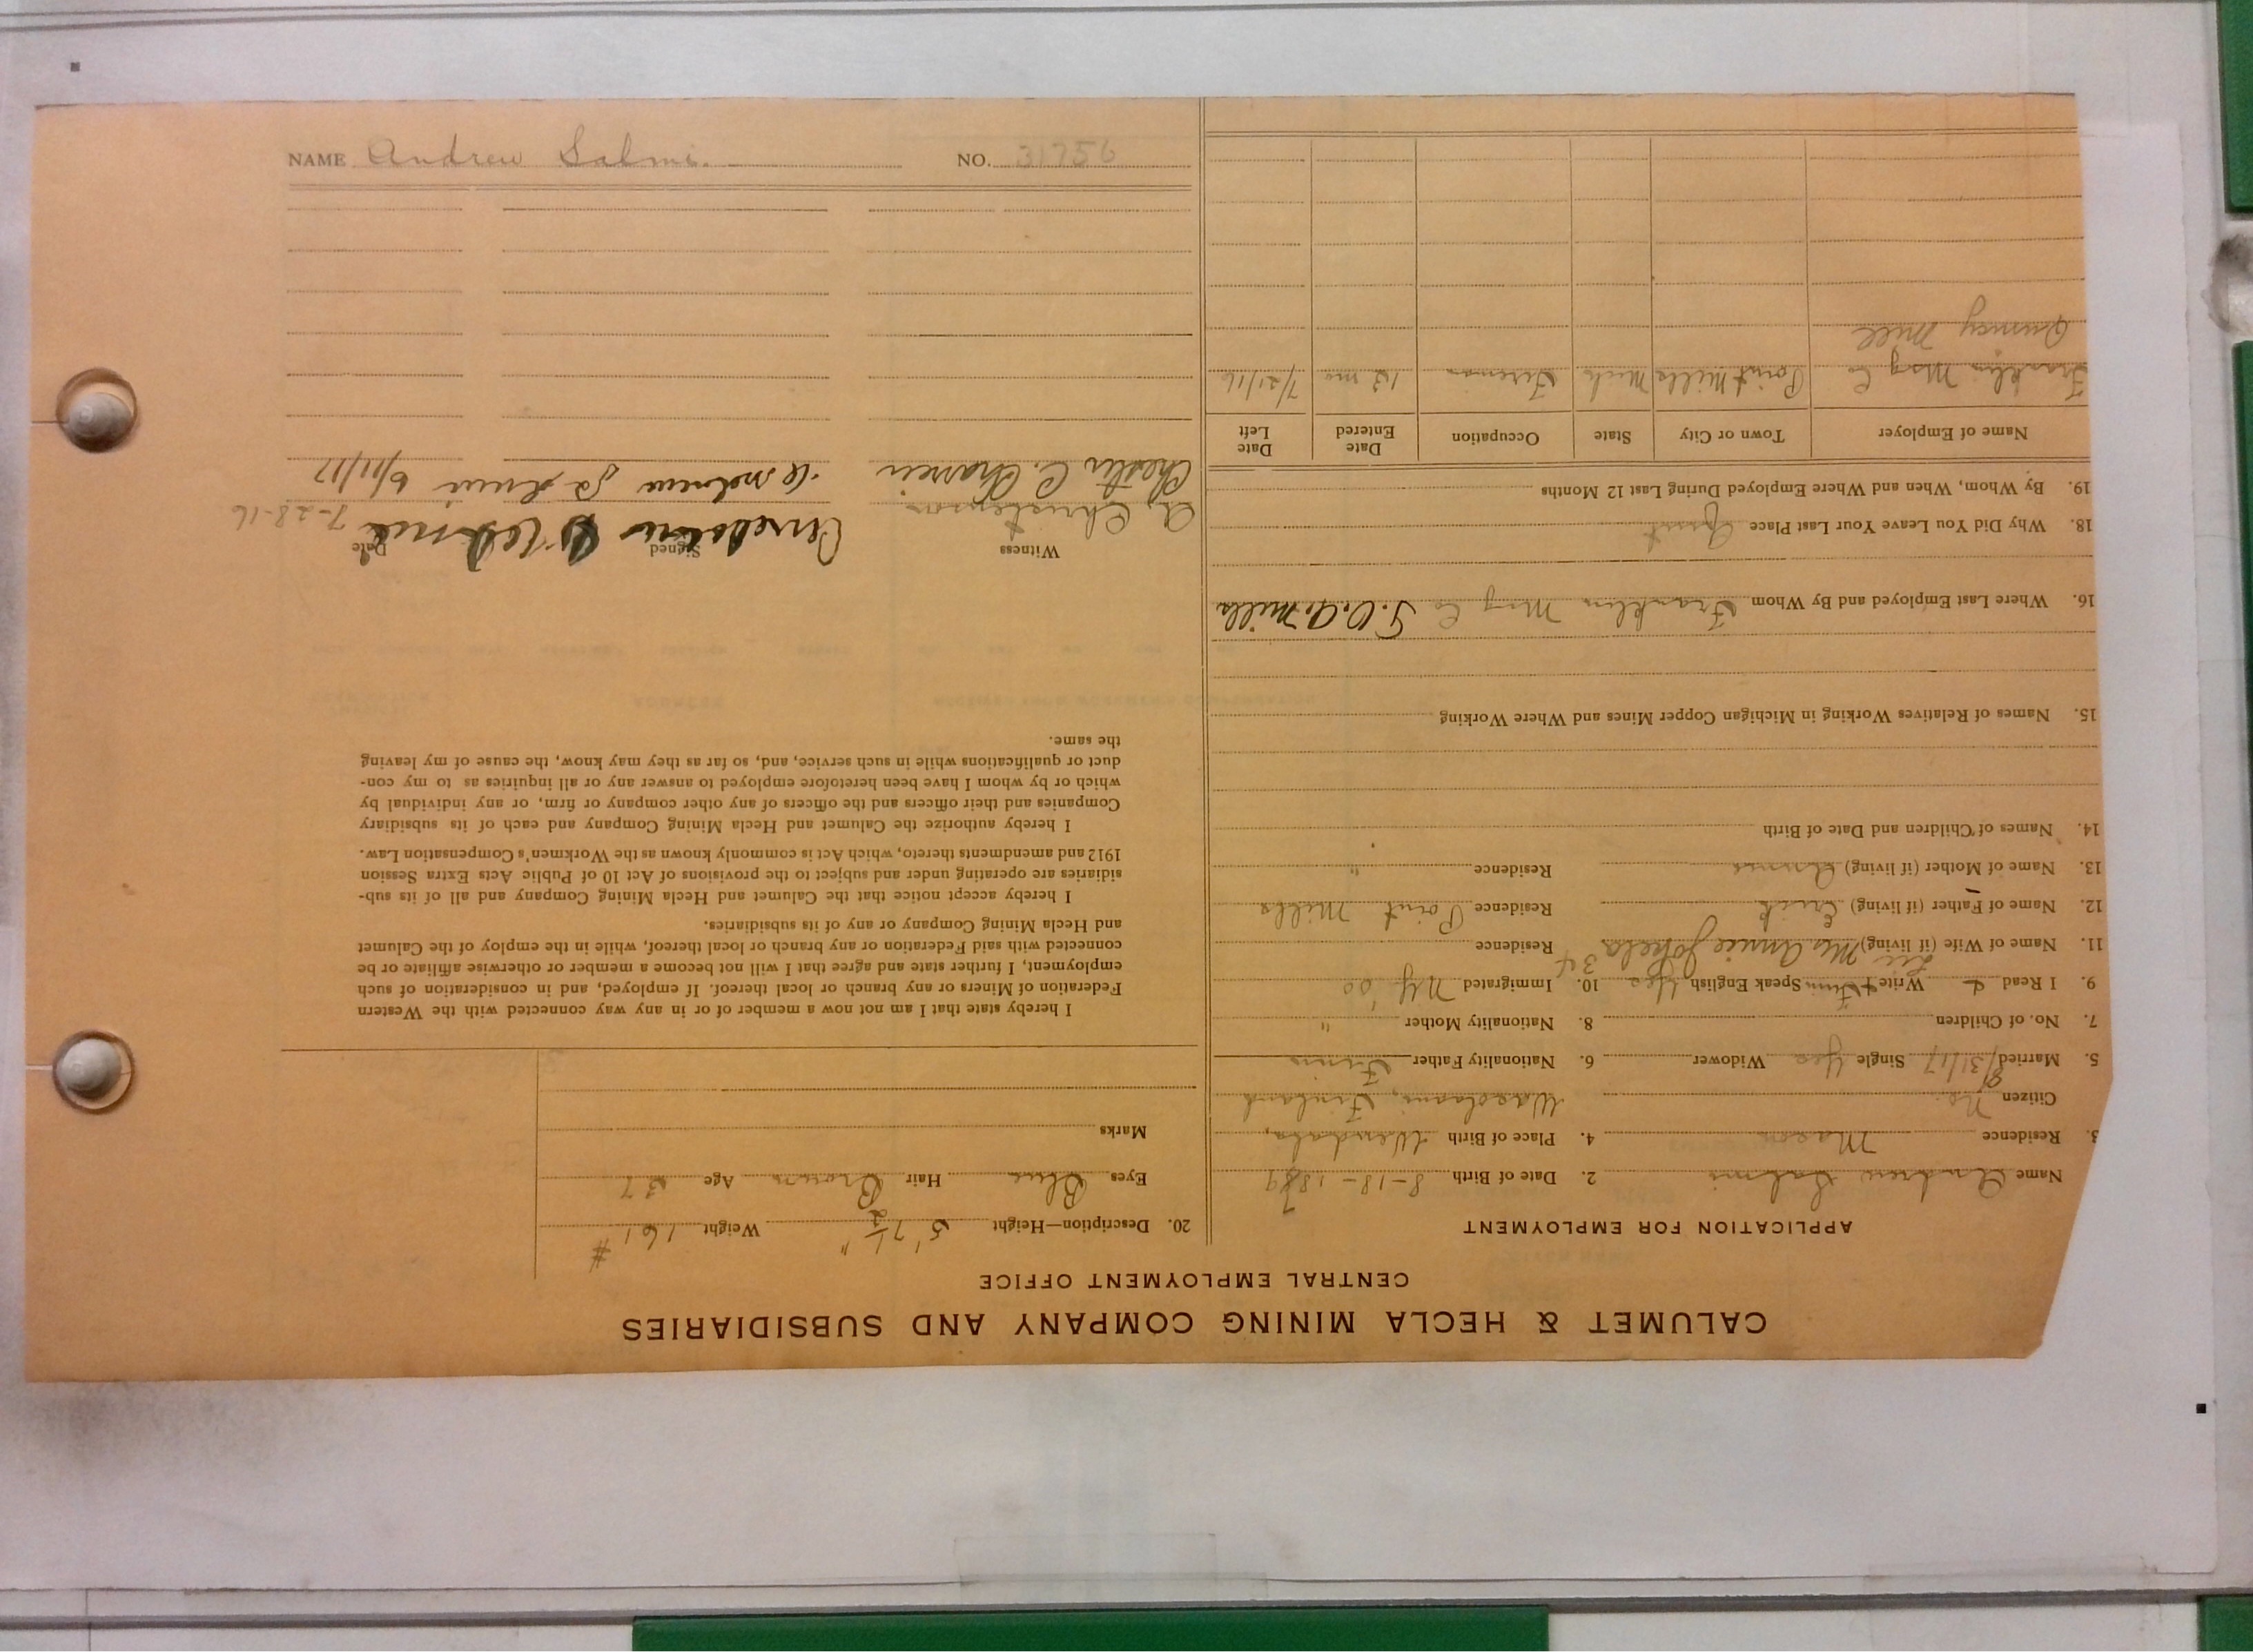 NAME Andrew Salmi. NO. 31756
CALUMET & HECLA MINING COMPANY AND SUBSIDIARIES
CENTRAL EMPLOYMENT OFFICE
APPLICATION FOR EMPLOYMENT
Name Andrew Salmi 2. Date of Birth 8-18-1889 7
3. Residence Mason 4. Place of Birth
Citizen No. Finland
5. Married 8/31/17 Single Yes Widower 6. Nationality Father Finn
7. No. of Children 8. Nationality Mother "
9. I Read & Write Finn Speak English Yes 10. Immigrated NY '00
11. Name of Wife (if living) Mrs Annie Jokela 34 Residence
12. Name of Father (if living) Erick Residence Point Mills
13. Name of Mother (if living) Residence "
14. Names of Children and Date of Birth
15. Names of Relatives Working in Michigan Copper Mines and Where Working
16. Where Last Employed and By Whom Franklin Mng Co Mills
18. Why Did You Leave Your Last Place Quit
19. By Whom, When and Where Employed During Last 12 Months
Name of Employer Town or City State Occupation Date Entered Date Left
Franklin Mng Co Point Mills Mich Fireman 12 mo 7/21/16
Quincy Mill
20. Description—Height 5' 7 1/2" Weight 161 #
Eyes Blue Hair Brown Age 27
Marks
I hereby state that I am not now a member of or in any way connected with the Western
Federation of Miners or any branch or local thereof. If employed, and in consideration of such
employment, I further state and agree that I will not become a member or otherwise affiliate or be
connected with said Federation or any branch or local thereof, while in the employ of the Calumet
and Hecla Mining Company or any of its subsidiaries.
I hereby accept notice that the Calumet and Hecla Mining Company and all of its sub-
sidiaries are operating under and subject to the provisions of Act 10 of Public Acts Extra Session
1912 and amendments thereto, which Act is commonly known as the Workmen's Compensation Law.
I hereby authorize the Calumet and Hecla Mining Company and each of its subsidiary
Companies and their officers and the officers of any other company or firm, or any individual by
which or by whom I have been heretofore employed to answer any or all inquiries as to my con-
duct or qualifications while in such service, and, so far as they may know, the cause of my leaving
the same.
Witness Signed Date
7-28-16
Chester C. Andrew Salmi 6/11/17